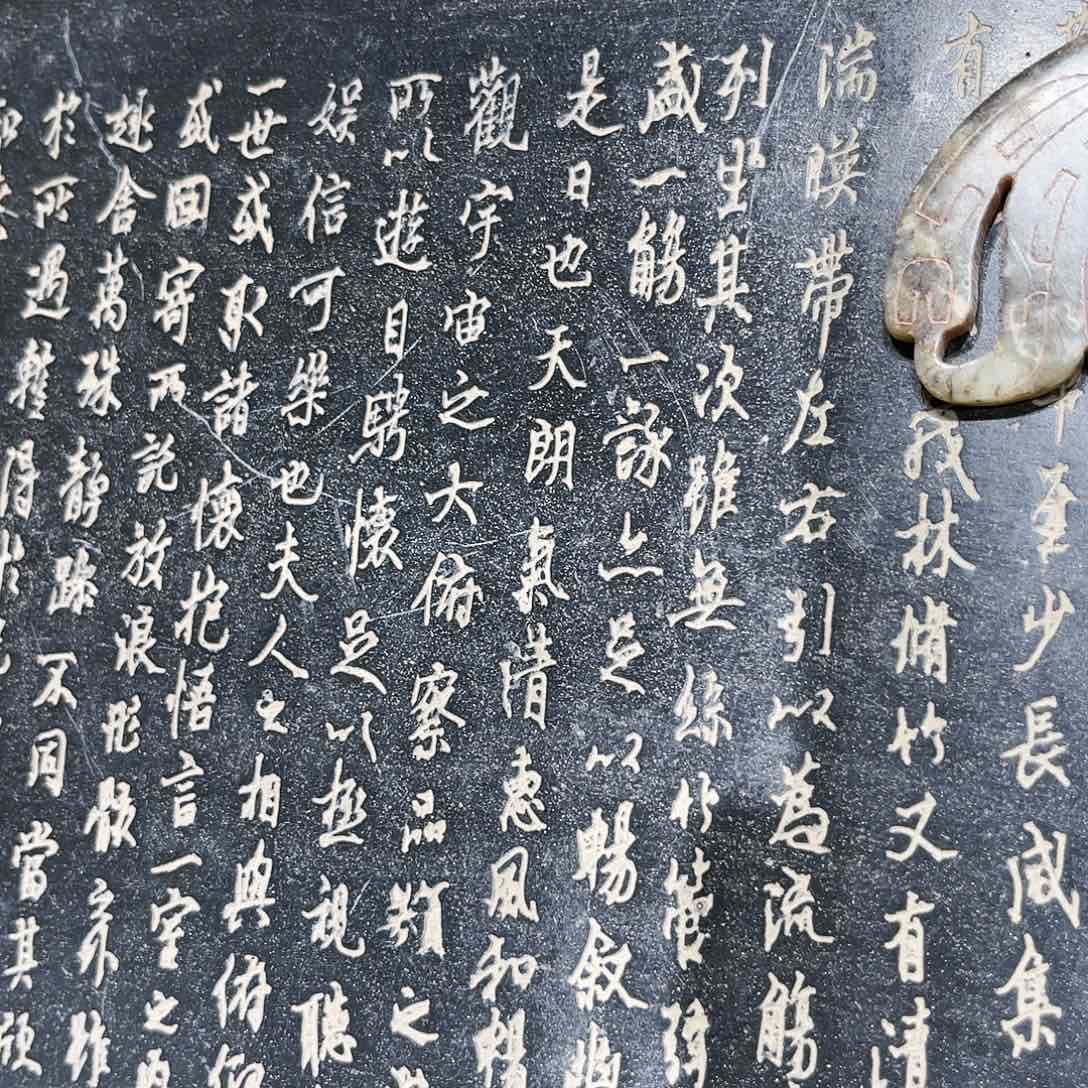 至少長咸集
有茂林脩竹又有清
湍暎帶左右引以為流觴
列坐其次雖無絲竹管弦
盛一觴一詠亦足以暢敘幽
是日也天朗氣清惠風和暢
觀宇宙之大俯察品類之
所以遊目騁懷足以極視聽
娛信可樂也夫人之相與俯仰
一世或取諸懷抱悟言一室之內
或因寄所託放浪形骸之外雖
趣舍萬殊靜躁不同當其欣
於所遇蹔得於